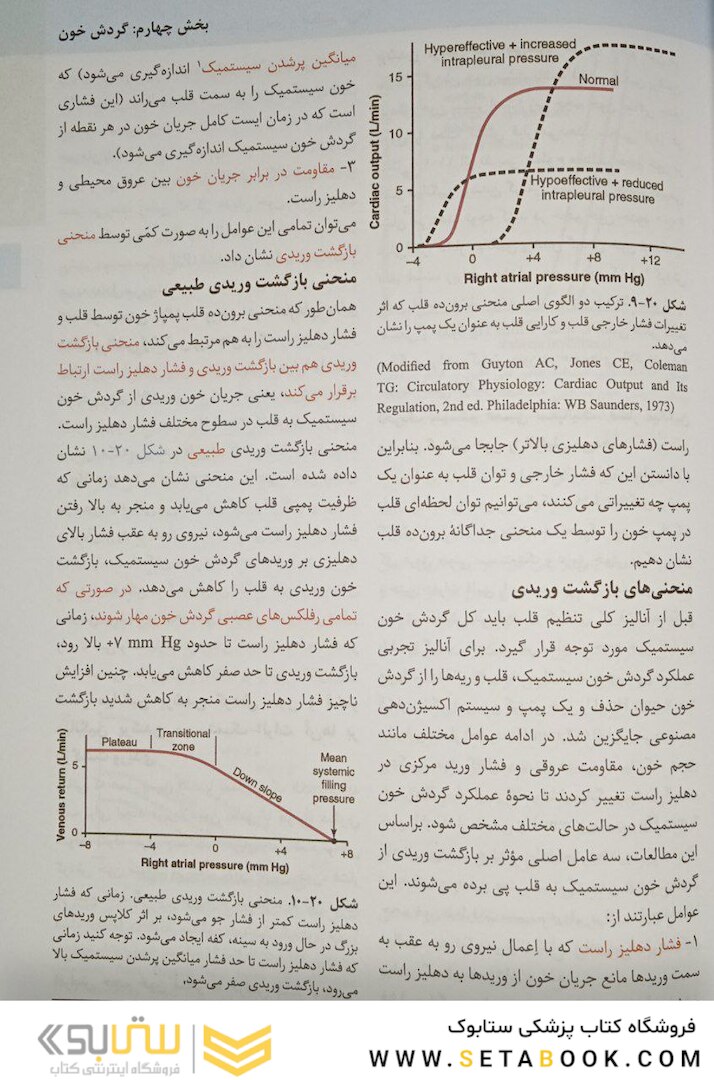 بخش چهارم: گردش خون
Hypereffective + increased
intrapleural pressure
Normal
Hypoeffective + reduced
intrapleural pressure
Cardiac output (L/min)
15
10
5
0
−4
0
+4
+8
+12
Right atrial pressure (mm Hg)
شکل ۲۰-۹. ترکیب دو الگوی اصلی منحنی برون‌ده قلب که اثر
تغییرات فشار خارجی قلب و کارایی قلب به عنوان یک پمپ را نشان
می‌دهد.
(Modified from Guyton AC, Jones CE, Coleman
TG: Circulatory Physiology: Cardiac Output and Its
Regulation, 2nd ed. Philadelphia: WB Saunders, 1973)
راست (فشارهای دهلیزی بالاتر) جابجا می‌شود. بنابراین
با دانستن این که فشار خارجی و توان قلب به عنوان یک
پمپ چه تغییراتی می‌کنند، می‌توانیم توان لحظه‌ای قلب
در پمپ خون را توسط یک منحنی جداگانهٔ برون‌ده قلب
نشان دهیم.
منحنی‌های بازگشت وریدی
قبل از آنالیز کلی تنظیم قلب باید کل گردش خون
سیستمیک مورد توجه قرار گیرد. برای آنالیز تجربی
عملکرد گردش خون سیستمیک، قلب و ریه‌ها را از گردش
خون حیوان حذف و یک پمپ و سیستم اکسیژن‌دهی
مصنوعی جایگزین شد. در ادامه عوامل مختلف مانند
حجم خون، مقاومت عروقی و فشار ورید مرکزی در
دهلیز راست تغییر کردند تا نحوهٔ عملکرد گردش خون
سیستمیک در حالت‌های مختلف مشخص شود. براساس
این مطالعات، سه عامل اصلی مؤثر بر بازگشت وریدی از
گردش خون سیستمیک به قلب پی برده می‌شوند. این
عوامل عبارتند از:
۱- فشار دهلیز راست که با اِعمال نیروی رو به عقب به
سمت وریدها مانع جریان خون از وریدها به دهلیز راست
میانگین پرشدن سیستمیک۱ اندازه‌گیری می‌شود) که
خون سیستمیک را به سمت قلب می‌راند (این فشاری
است که در زمان ایست کامل جریان خون در هر نقطه از
گردش خون سیستمیک اندازه‌گیری می‌شود).
۳- مقاومت در برابر جریان خون بین عروق محیطی و
دهلیز راست.
می‌توان تمامی این عوامل را به صورت کمّی توسط منحنی
بازگشت وریدی نشان داد.
منحنی بازگشت وریدی طبیعی
همان‌طور که منحنی برون‌ده قلب پمپاژ خون توسط قلب و
فشار دهلیز راست را به هم مرتبط می‌کند، منحنی بازگشت
وریدی هم بین بازگشت وریدی و فشار دهلیز راست ارتباط
برقرار می‌کند، یعنی جریان خون وریدی از گردش خون
سیستمیک به قلب در سطوح مختلف فشار دهلیز راست.
منحنی بازگشت وریدی طبیعی در شکل ۲۰-۱۰ نشان
داده شده است. این منحنی نشان می‌دهد زمانی که
ظرفیت پمپی قلب کاهش می‌یابد و منجر به بالا رفتن
فشار دهلیز راست می‌شود، نیروی رو به عقب فشار بالای
دهلیزی بر وریدهای گردش خون سیستمیک، بازگشت
خون وریدی به قلب را کاهش می‌دهد. در صورتی که
تمامی رفلکس‌های عصبی گردش خون مهار شوند، زمانی
که فشار دهلیز راست تا حدود +۷ mm Hg بالا رود،
بازگشت وریدی تا حد صفر کاهش می‌یابد. چنین افزایش
ناچیز فشار دهلیز راست منجر به کاهش شدید بازگشت
Plateau
Transitional
zone
Down slope
Mean
systemic
filling
pressure
Venous return (L/min)
5
0
−8
−4
0
+4
+8
Right atrial pressure (mm Hg)
شکل ۲۰-۱۰. منحنی بازگشت وریدی طبیعی. زمانی که فشار
دهلیز راست کمتر از فشار جو می‌شود، بر اثر کلاپس وریدهای
بزرگ در حال ورود به سینه، کفه ایجاد می‌شود. توجه کنید زمانی
که فشار دهلیز راست تا حد فشار میانگین پرشدن سیستمیک بالا
می‌رود، بازگشت وریدی صفر می‌شود.
فروشگاه کتاب پزشکی ستابوک
WWW.SETABOOK.COM
ستابوک
فروشگاه اینترنتی کتاب